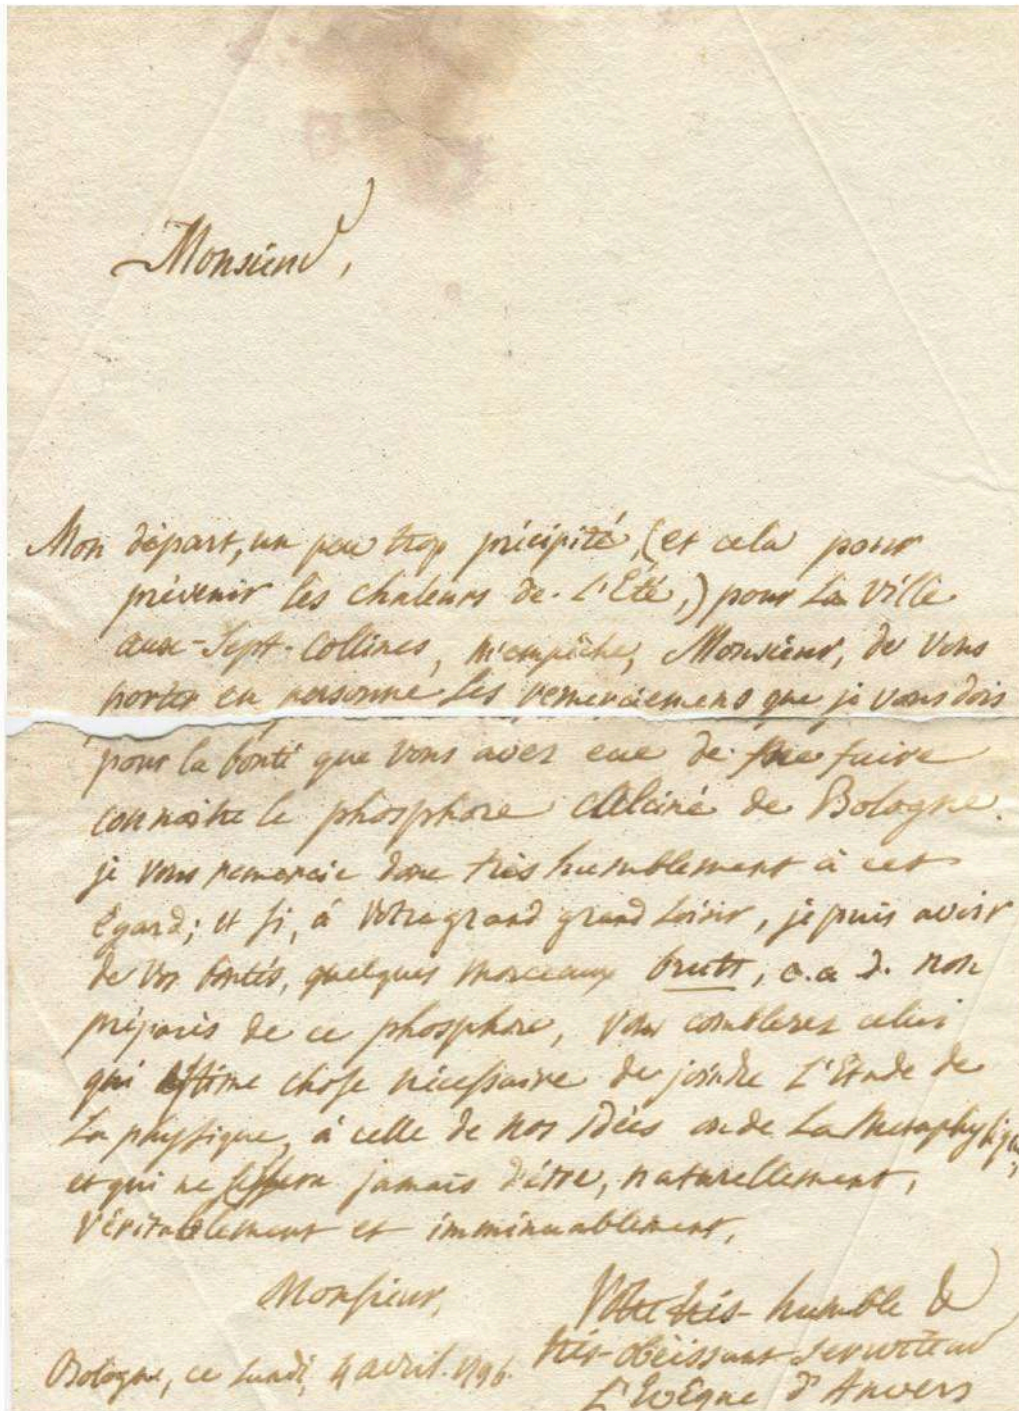 Monsieur,
Mon départ, un peu trop précipité, (et cela pour
prévenir les chaleurs de L'Eté,) pour La Ville
aux-Sept-Collines, m'empêche, Monsieur, de vous
porter en personne Les remerciemens que je vous dois
pour la bonté que vous avez eue de me faire
connoitre le phosphore calciné de Bologne.
je vous remercie donc très humblement à cet
Egard; et si, à Votre grand grand Loisir, je puis avoir
de vos bontés, quelques morceaux brutts, c.a.d. non
préparés de ce phosphore, vous comblerez celui
qui Estime chose nécessaire de joindre L'Etude de
La physique, à celle de nos Idées ou de La Metaphysique,
et qui ne cessera jamais d'être, naturellement,
Véritablement et imminuablement,
Monsieur,
Votre très-humble &
très-obéissant serviteur
L'Evêque d'Anvers
Bologne, ce Lundi, 4 avril. 1796.